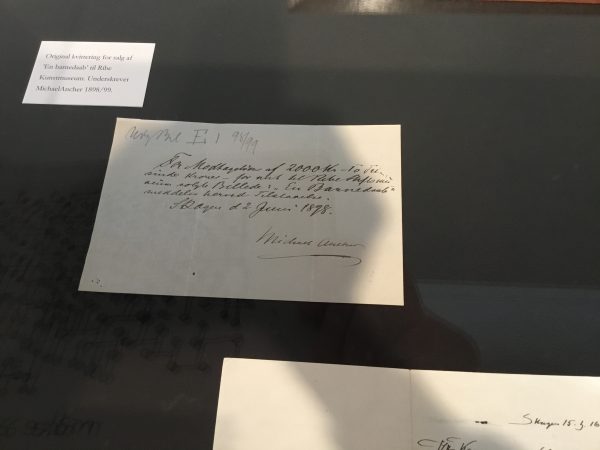 Original kvittering for salg af
'En barnedaab' til Ribe
Kunstmuseum. Underskrevet
MichaelAncher 1898/99.
Bil E 1 98/99
For Modtagelsen af 2000 Kr. To Tu-
sinde Kroner for mit til Ribe
solgte Billede: "En Barnedaab"
meddeles herved Tilstaaelse.
Skagen d 2 Juni 1898.
Michael Ancher
Skagen 15